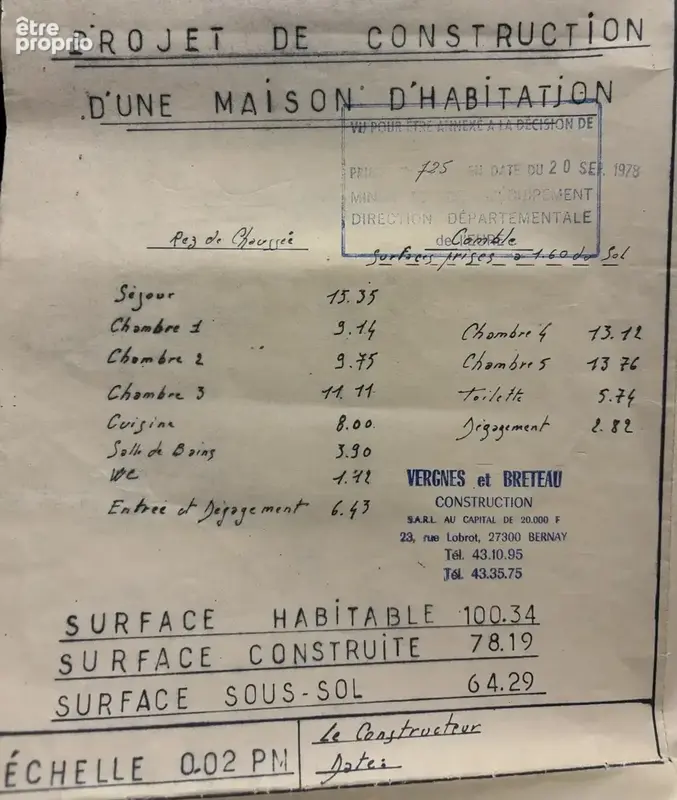 être
proprio
PROJET DE CONSTRUCTION
D'UNE MAISON D'HABITATION
VU POUR ÊTRE ANNEXÉ A LA DÉCISION DE
725 EN DATE DU 20 SEP. 1978
DIRECTION DÉPARTEMENTALE
de l'EURE
Rez de Chaussée
Comble
Surfaces prises a 1.60 du Sol
Séjour 15.35
Chambre 1 9.14
Chambre 4 13.12
Chambre 2 9.75
Chambre 5 13 76
Chambre 3 11.11
Toilette 5.74
Cuisine 8.00
Dégagement 2.82
Salle de Bains 3.90
WC 1.72
Entrée et Dégagement 6.43
VERGNES et BRETEAU
CONSTRUCTION
S.A.R.L. AU CAPITAL DE 20.000 F
23, rue Lobrot, 27300 BERNAY
Tél. 43.10.95
Tél. 43.35.75
SURFACE HABITABLE 100.34
SURFACE CONSTRUITE 78.19
SURFACE SOUS-SOL 64.29
ÉCHELLE 0.02 PM
Le Constructeur
Date: